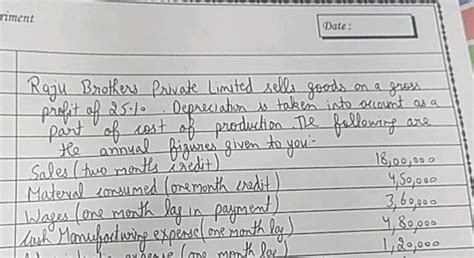 riment
Date :
Raju Brothers Private Limited sells goods on a gross
profit of 25%. Depreciation is taken into account as a
part of cost of production. The following are
the annual figures given to you:-
Sales (two months credit) 18,00,000
Material consumed (one month credit) 4,50,000
Wages (one month lag in payment) 3,60,000
Cash Manufacturing expense (one month lag) 4,80,000
expense (one month lag) 1,20,000